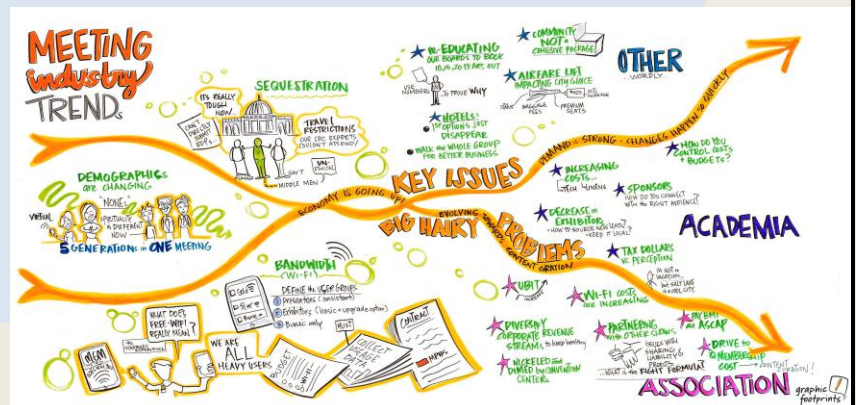 MEETING
industry
TRENDs
SEQUESTRATION
IT'S REALLY
TOUGH
NOW...
CAN'T
TRAVEL
RESTRICTIONS
OUR CDC EXPERTS
COULDN'T ATTEND!
GOV'T
MIDDLE MEN
DEMOGRAPHICS
are CHANGING
"NONE"
SPIRITUALITY
IS DIFFERENT
NOW
VIRTUAL
5 GENERATIONS in ONE MEETING
ECONOMY IS GOING UP!
KEY ISSUES
BIG HAIRY
PROBLEMS
EVOLVING TOWARDS CONTENT
DEMAND is STRONG - CHANGES HAPPEN SO QUICKLY
RE-EDUCATING
OUR BOARDS TO BOOK
10, 15, 20 YEARS OUT
USE
NUMBERS
...TO PROVE WHY
HOTELS:
1ST OPTIONS JUST
DISAPPEAR
WALK THE WHOLE GROUP
FOR BETTER BUSINESS
COMMUNITY
NOT A
COHESIVE PACKAGE
AIRFARE LIFT
IMPACTING CITY CHOICE
BAGGAGE
FEES
PREMIUM
SEATS
OTHER
...WORLDLY
HOW DO YOU
CONTROL COSTS
+ BUDGETS?
INCREASING
COSTS...
TECH
LINENS
SPONSORS
HOW DO YOU CONNECT
WITH THE RIGHT AUDIENCE?
DECREASE in
EXHIBITOR
HOW TO SOURCE NEW LEADS?
KEEP IT LOCAL?
ACADEMIA
TAX DOLLARS
vs PERCEPTION
I'M NOT on
VACATION...
BUT SALT LAKE
is a COOL CITY
BANDWIDTH
(WI-FI)
DEFINE the USER GROUPS
Gold
Silver
Bronze
PRESENTERS (consistent)
EXHIBITORS (basic + upgrade option)
BASIC only
WHAT DOES
FREE-WIFI
REALLY MEAN?
WE ARE
ALL
HEAVY USERS
BUDGET
WI-FI
MUST
COLLECT
USAGE
DATA
CONTRACT
MBPS
UBIT
INCREASES
WI-FI COSTS
are INCREASING
DIVERSIFY
CORPORATE REVENUE
STREAMS to keep healthy
NICKELED and
DIMED by CONVENTION
CENTERS
PARTNERING
with OTHER SHOWS
ISSUES WITH
SHARING
LIABILITY &
PROFITS
...WHAT is the RIGHT FORMULA?
PAY BMI
and ASCAP
DRIVE to
MEMBERSHIP
COST
CONTENT
ASSOCIATION
graphic
footprints